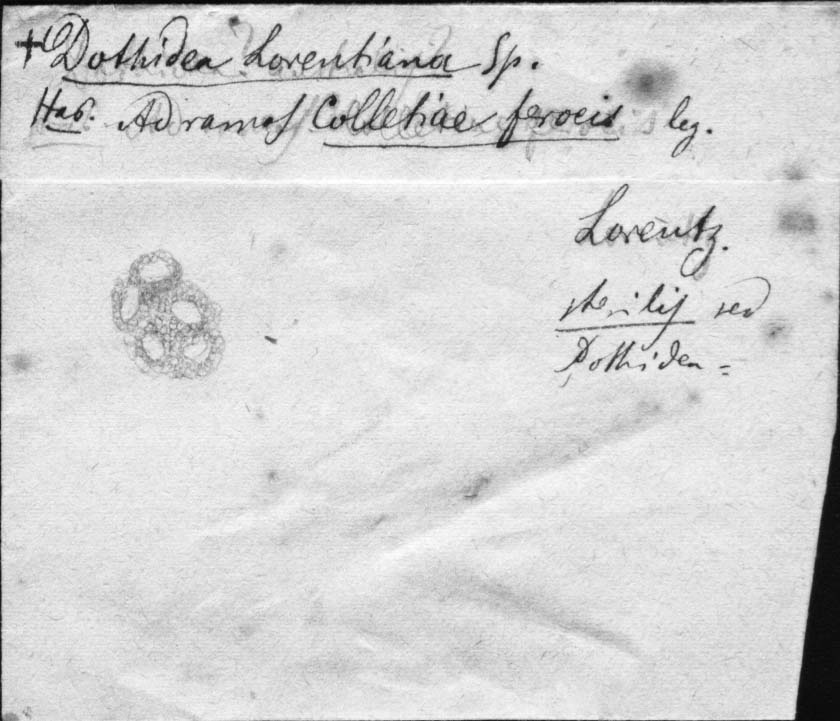 † Dothidea Lorentiana Sp.
Hab. Ad ramos Colletiae ferocis leg.
Lorentz.
sterilis sed
Dothidea =